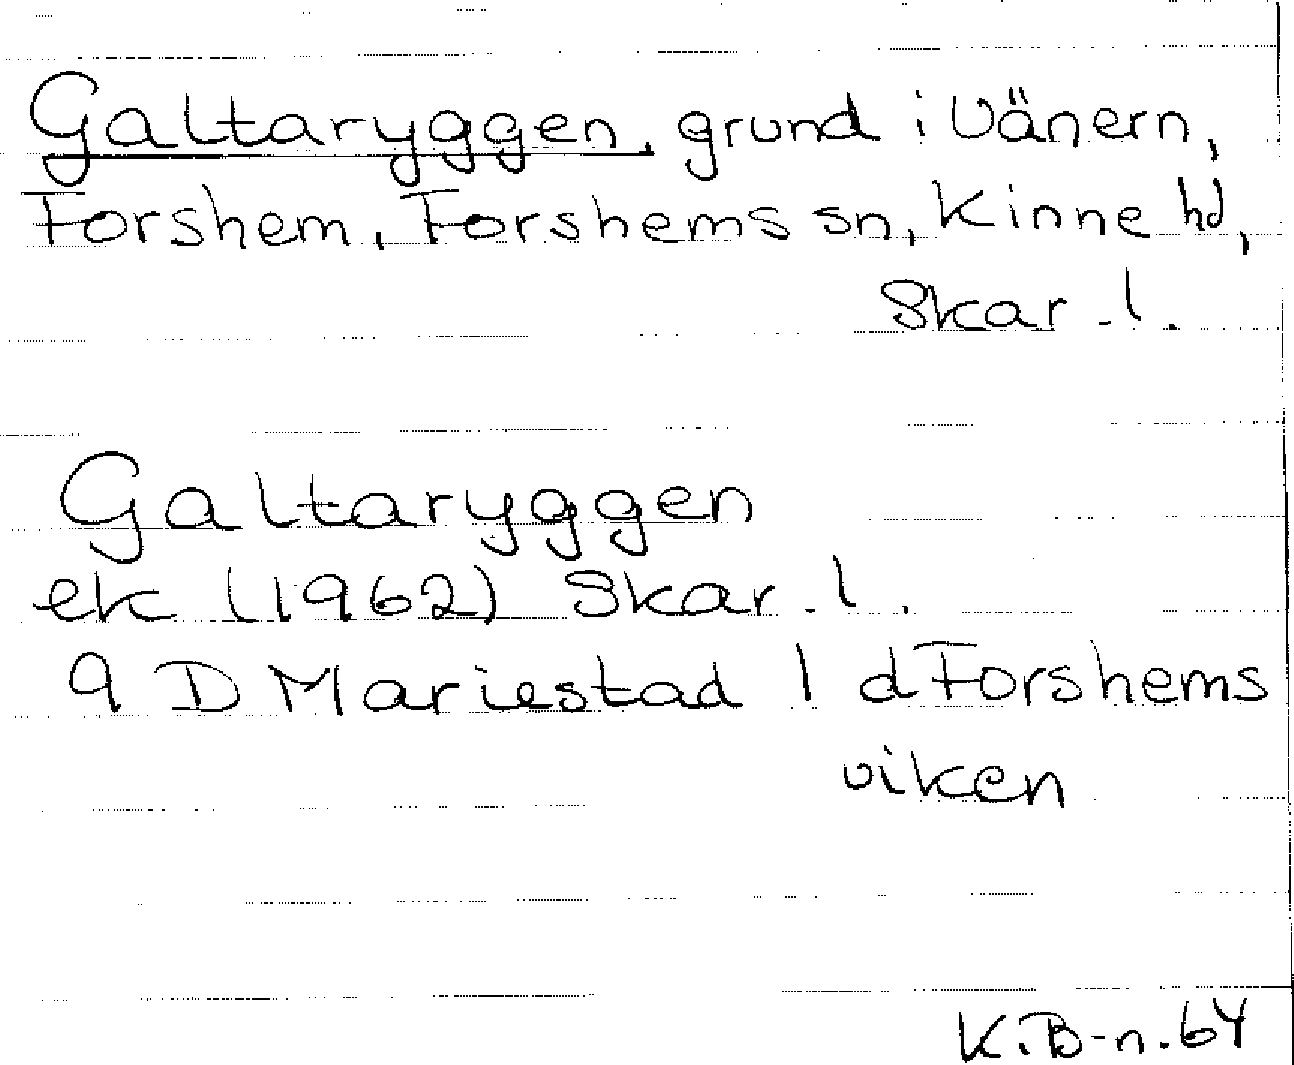 Galtaryggen, grund i Vänern,
Forshem, Forshems sn, Kinne hd,
Skar. l.
Galtaryggen
ek (1962) Skar. l.
9 D Mariestad 1 d Forshems
viken
K.B-n. 64